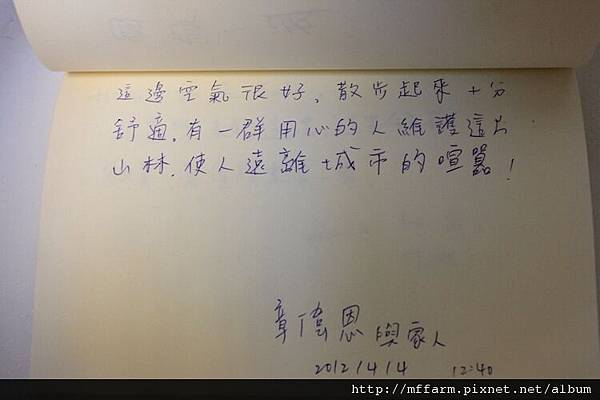 這邊空氣很好,散步起來十分
舒適.有一群用心的人維護這片
山林.使人遠離城市的喧囂!
章偉恩與家人
2012/4/4 12:40
http://mffarm.pixnet.net/album